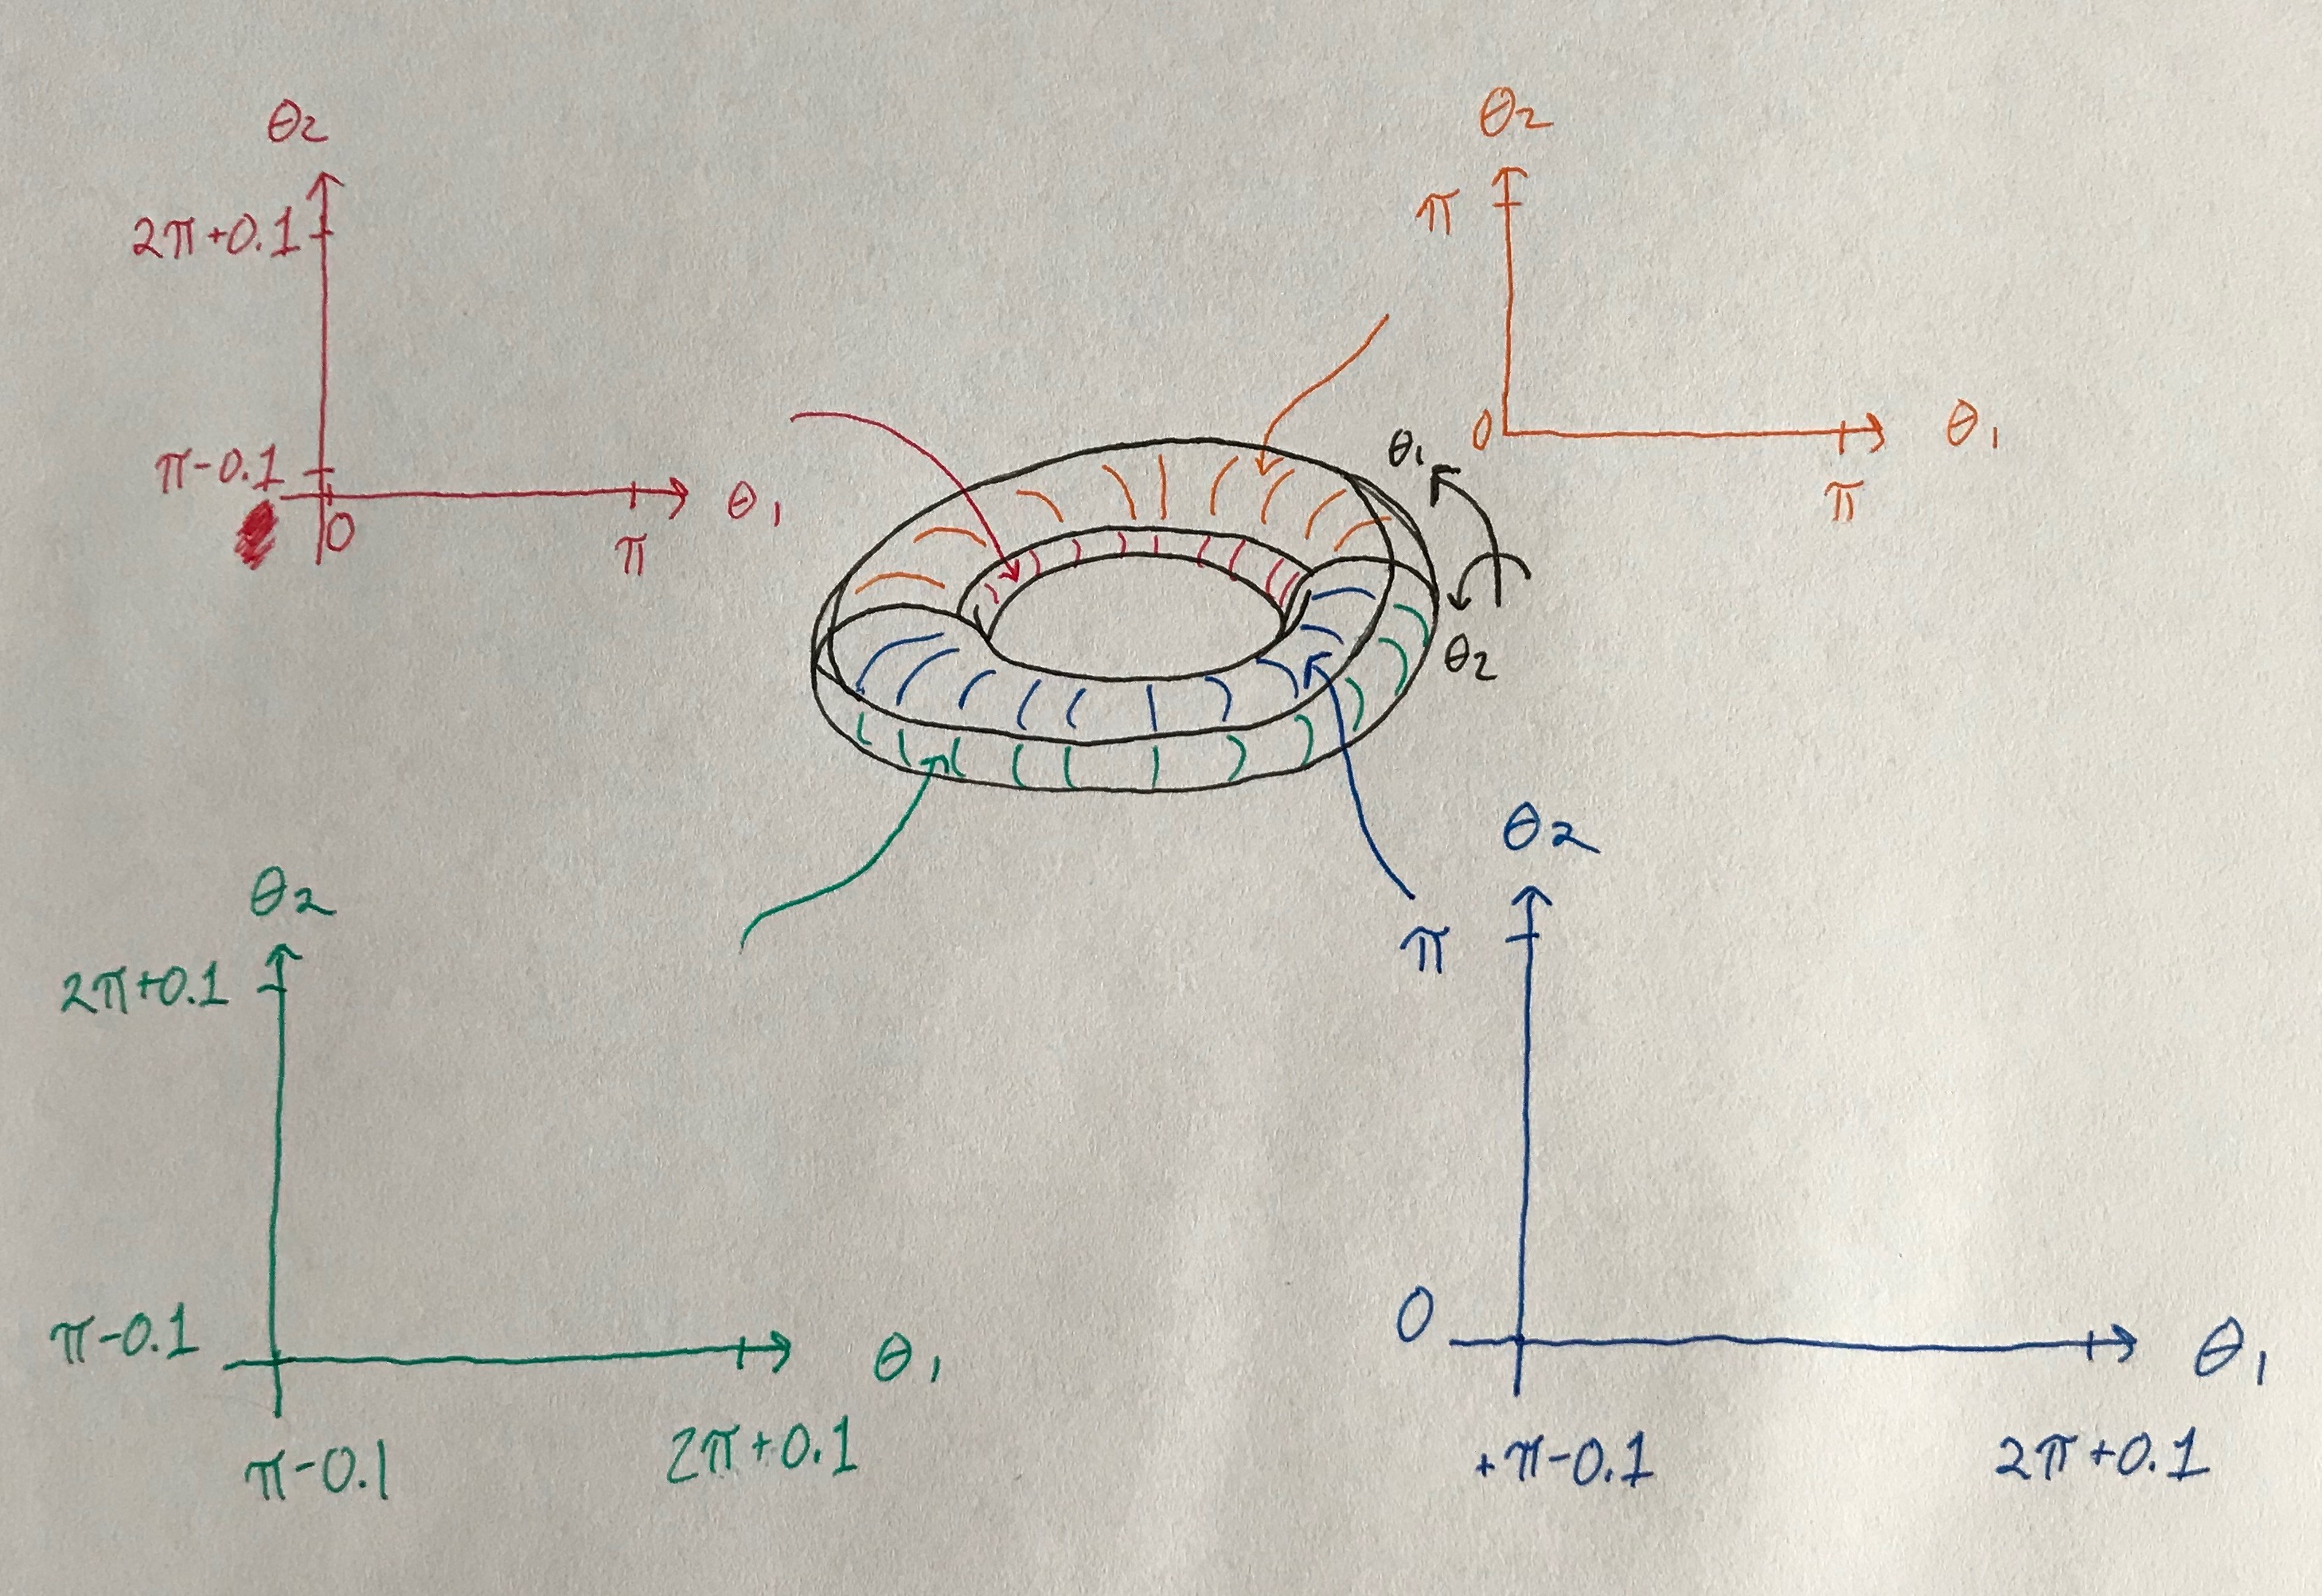 θ2
2π+0.1
π-0.1
0
π
θ1
θ2
π
0
π
θ1
θ1
θ2
θ2
2π+0.1
π-0.1
π-0.1
2π+0.1
θ1
θ2
π
0
+π-0.1
2π+0.1
θ1